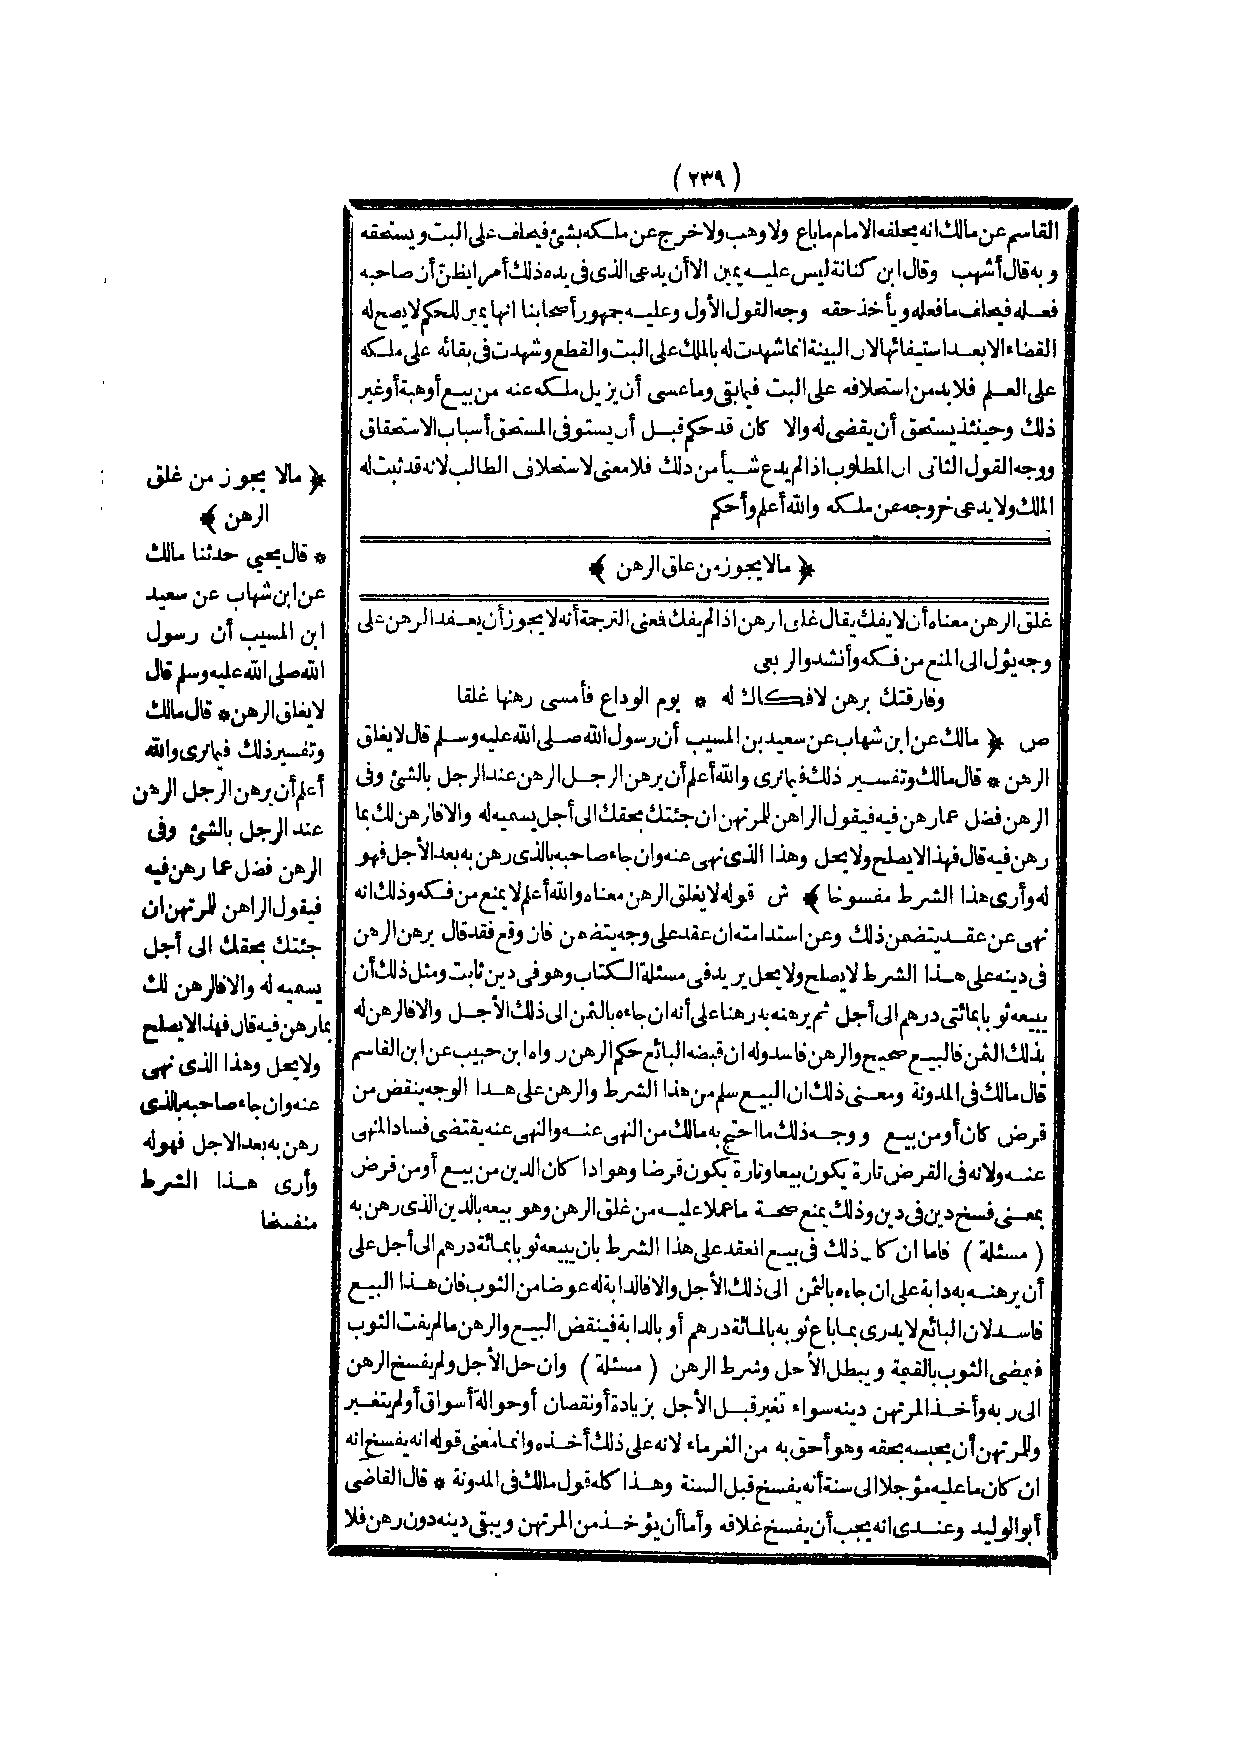 (٢٣٩)
القاسم عن مالك انه يحلفه الامام ما باع ولا وهب ولا خرج عن ملكه بشئ فيحلف على البت ويستحقه
وبه قال أشهب وقال ابن كنانة ليس عليه يمين الا أن يدعى الذى فى يده ذلك أمرا يظن أن صاحبه
فعله فيحلف ما فعله ويأخذ حقه وجه القول الأول وعليه جمهور أصحابنا انها يمين للحكم لا يصح له
القضاء الا بعد استيفائها لان البينة انما شهدت له بالملك على البت والقطع وشهدت فى بقائه على ملكه
على العلم فلا بد من استحلافه على البت فيما بقى وما عسى أن يزيل ملكه عنه من بيع أو هبة أو غير
ذلك وحينئذ يستحق أن يقضى له والا كان قد حكم قبل أن يستوفى المستحق أسباب الاستحقاق
ووجه القول الثانى ان المطلوب اذا لم يدع شيأ من ذلك فلا معنى لاستحلاف الطالب لانه قد ثبت له
الملك ولا يدعى خروجه عن ملكه والله أعلم وأحكم
﴿ مالا يجوز من غلق الرهن ﴾
غلق الرهن معناه أن لا يفك يقال غلق الرهن اذا لم يفك فمعنى الترجمة أنه لا يجوز أن يعقد الرهن على
وجه يؤل الى المنع من فكه وأنشدوا
وفارقتك برهن لا فكاك له * يوم الوداع فأمسى رهنها غلقا
ص ﴿ مالك عن ابن شهاب عن سعيد بن المسيب أن رسول الله صلى الله عليه وسلم قال لا يغلق
الرهن * قال مالك وتفسير ذلك فيما نرى والله أعلم أن يرهن الرجل الرهن عند الرجل بالشئ وفى
الرهن فضل عما رهن فيه فيقول الراهن للمرتهن ان جئتك بحقك الى أجل يسميه له والا فالرهن لك بما
رهن فيه قال فهذا لا يصلح ولا يحل وهذا الذى نهى عنه وان جاء صاحبه بالذى رهن به بعد الأجل فهو
له وأرى هذا الشرط مفسوخا ﴾ ش قوله لا يغلق الرهن معناه والله أعلم لا يمنع من فكه وذلك انه
نهى عن عقد يتضمن ذلك وعن استدامته ان عقد على وجه يتضمنه فان وقع فقد قال يرهن الرهن
فى دينه على هذا الشرط لا يصلح ولا يحل يريد فى مسئلة الكتاب وهو فى دين ثابت ومثل ذلك أن
يبيعه ثوبا بمائتى درهم الى أجل ثم يرهنه به رهنا على أنه ان جاءه بالثمن الى ذلك الأجل والا فالرهن له
بذلك الثمن فالبيع صحيح والرهن فاسد وله ان قبضه البائع حكم الرهن رواه ابن حبيب عن ابن القاسم
قال مالك فى المدونة ومعنى ذلك ان البيع سلم من هذا الشرط والرهن على هذا الوجه ينقض من
قرض كان أو من بيع ووجه ذلك ما احتج به مالك من النهى عنه والنهى عنه يقتضى فساد المنهى
عنه ولانه فى القرض تارة يكون بيعا وتارة يكون قرضا وهو اذا كان الدين من بيع أو من قرض
بمعنى فسخ دين فى دين وذلك يمنع صحة ما عملا عليه من غلق الرهن وهو بيعه بالدين الذى رهن به
( مسئلة ) فاما ان كان ذلك فى بيع انعقد على هذا الشرط بان يبيعه ثوبا بمائة درهم الى أجل على
أن يرهنه به دابة على ان جاءه بالثمن الى ذلك الأجل والا فالدابة له عوضا من الثوب فان هذا البيع
فاسد لان البائع لا يدرى بما باع ثوبه بالمائة درهم أو بالدابة فينقض البيع والرهن ما لم يفت الثوب
فيمضى الثوب بالقيمة ويبطل الأجل وشرط الرهن ( مسئلة ) وان حل الأجل ولم يفسخ الرهن
الى ربه وأخذ المرتهن دينه سواء تغير قبل الأجل بزيادة أو نقصان أو حوالة أسواق أو لم يتغير
وللمرتهن أن يحبسه بحقه وهو أحق به من الغرماء لانه على ذلك أخذه وانما معنى قوله انه يفسخ انه
ان كان ما عليه مؤجلا الى سنة أنه يفسخ قبل السنة وهذا كله قول مالك فى المدونة * قال القاضى
أبو الوليد وعندى انه يجب أن يفسخ غلاقه وأما أن يؤخذ من المرتهن ويبقى دينه دون رهن فلا
﴿ مالا يجوز من غلق
الرهن ﴾
* قال يحيى حدثنا مالك
عن ابن شهاب عن سعيد
ابن المسيب أن رسول
الله صلى الله عليه وسلم قال
لا يغلق الرهن * قال مالك
وتفسير ذلك فيما نرى والله
أعلم أن يرهن الرجل الرهن
عند الرجل بالشئ وفى
الرهن فضل عما رهن فيه
فيقول الراهن للمرتهن ان
جئتك بحقك الى أجل
يسميه له والا فالرهن لك
بما رهن فيه قال فهذا لا يصلح
ولا يحل وهذا الذى نهى
عنه وان جاء صاحبه بالذى
رهن به بعد الاجل فهو له
وأرى هذا الشرط
منفسخا